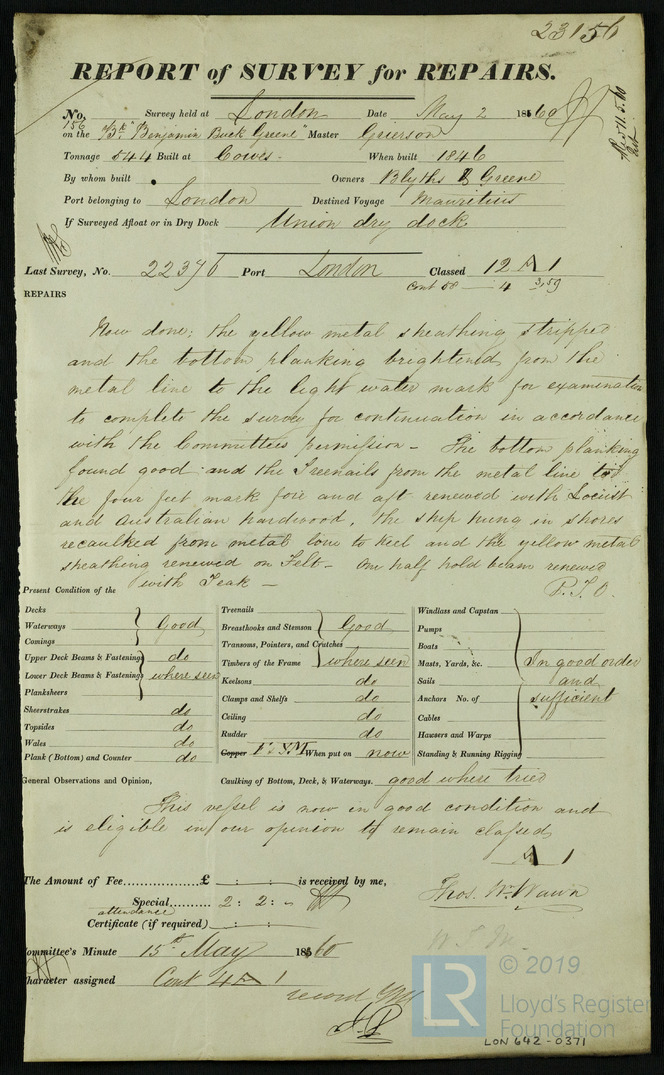 23156
REPORT of SURVEY for REPAIRS.
No. 156 Survey held at London Date May 2 1860
on the "Bk "Benjamin Buck Greene" Master Grierson
Rec 11.5.60
Tonnage 544 Built at Cowes When built 1846
By whom built Owners Blyths & Greene
Port belonging to London Destined Voyage Mauritius
If Surveyed Afloat or in Dry Dock Union dry dock
Last Survey, No. 22376 Port London Classed 12 A 1
Cont 58 — 4 3,59
REPAIRS
Now done; the yellow metal sheathing stripped
and the bottom planking brightened from the
metal line to the light water mark for examination
to complete the survey for continuation in accordance
with the Committees permission - The bottom planking
found good and the Treenails from the metal line to
the four feet mark fore and aft renewed with Locust
and Australian hardwood, the ship hung in shores
recaulked from metal line to keel and the yellow metal
sheathing renewed on Felt - One half hold beam renewed
with Teak -
P.T.O.
Present Condition of the
Decks
Waterways Good
Comings
Upper Deck Beams & Fastenings do
Lower Deck Beams & Fastenings where seen
Planksheers
Sheerstrakes do
Topsides do
Wales do
Plank (Bottom) and Counter do
Treenails
Breasthooks and Stemson Good
Transoms, Pointers, and Crutches
Timbers of the Frame where seen
Keelsons do
Clamps and Shelfs do
Ceiling do
Rudder do
Copper F & YM When put on now
Windlass and Capstan
Pumps
Boats
Masts, Yards, &c. In good order
Sails and
Anchors No. of sufficient
Cables
Hawsers and Warps
Standing & Running Rigging
General Observations and Opinion, Caulking of Bottom, Deck, & Waterways. good where tried
This vessel is now in good condition and
is eligible in our opinion to remain classed
A 1
The Amount of Fee £ : : is received by me,
Special 2 : 2 : -
attendance
Certificate (if required) : :
Thos. Wm. Wawn
Committee's Minute 15th May 1860
Character assigned Cont 4 A 1
record
© 2019
LR
Lloyd's Register
Foundation
LON 642-0371